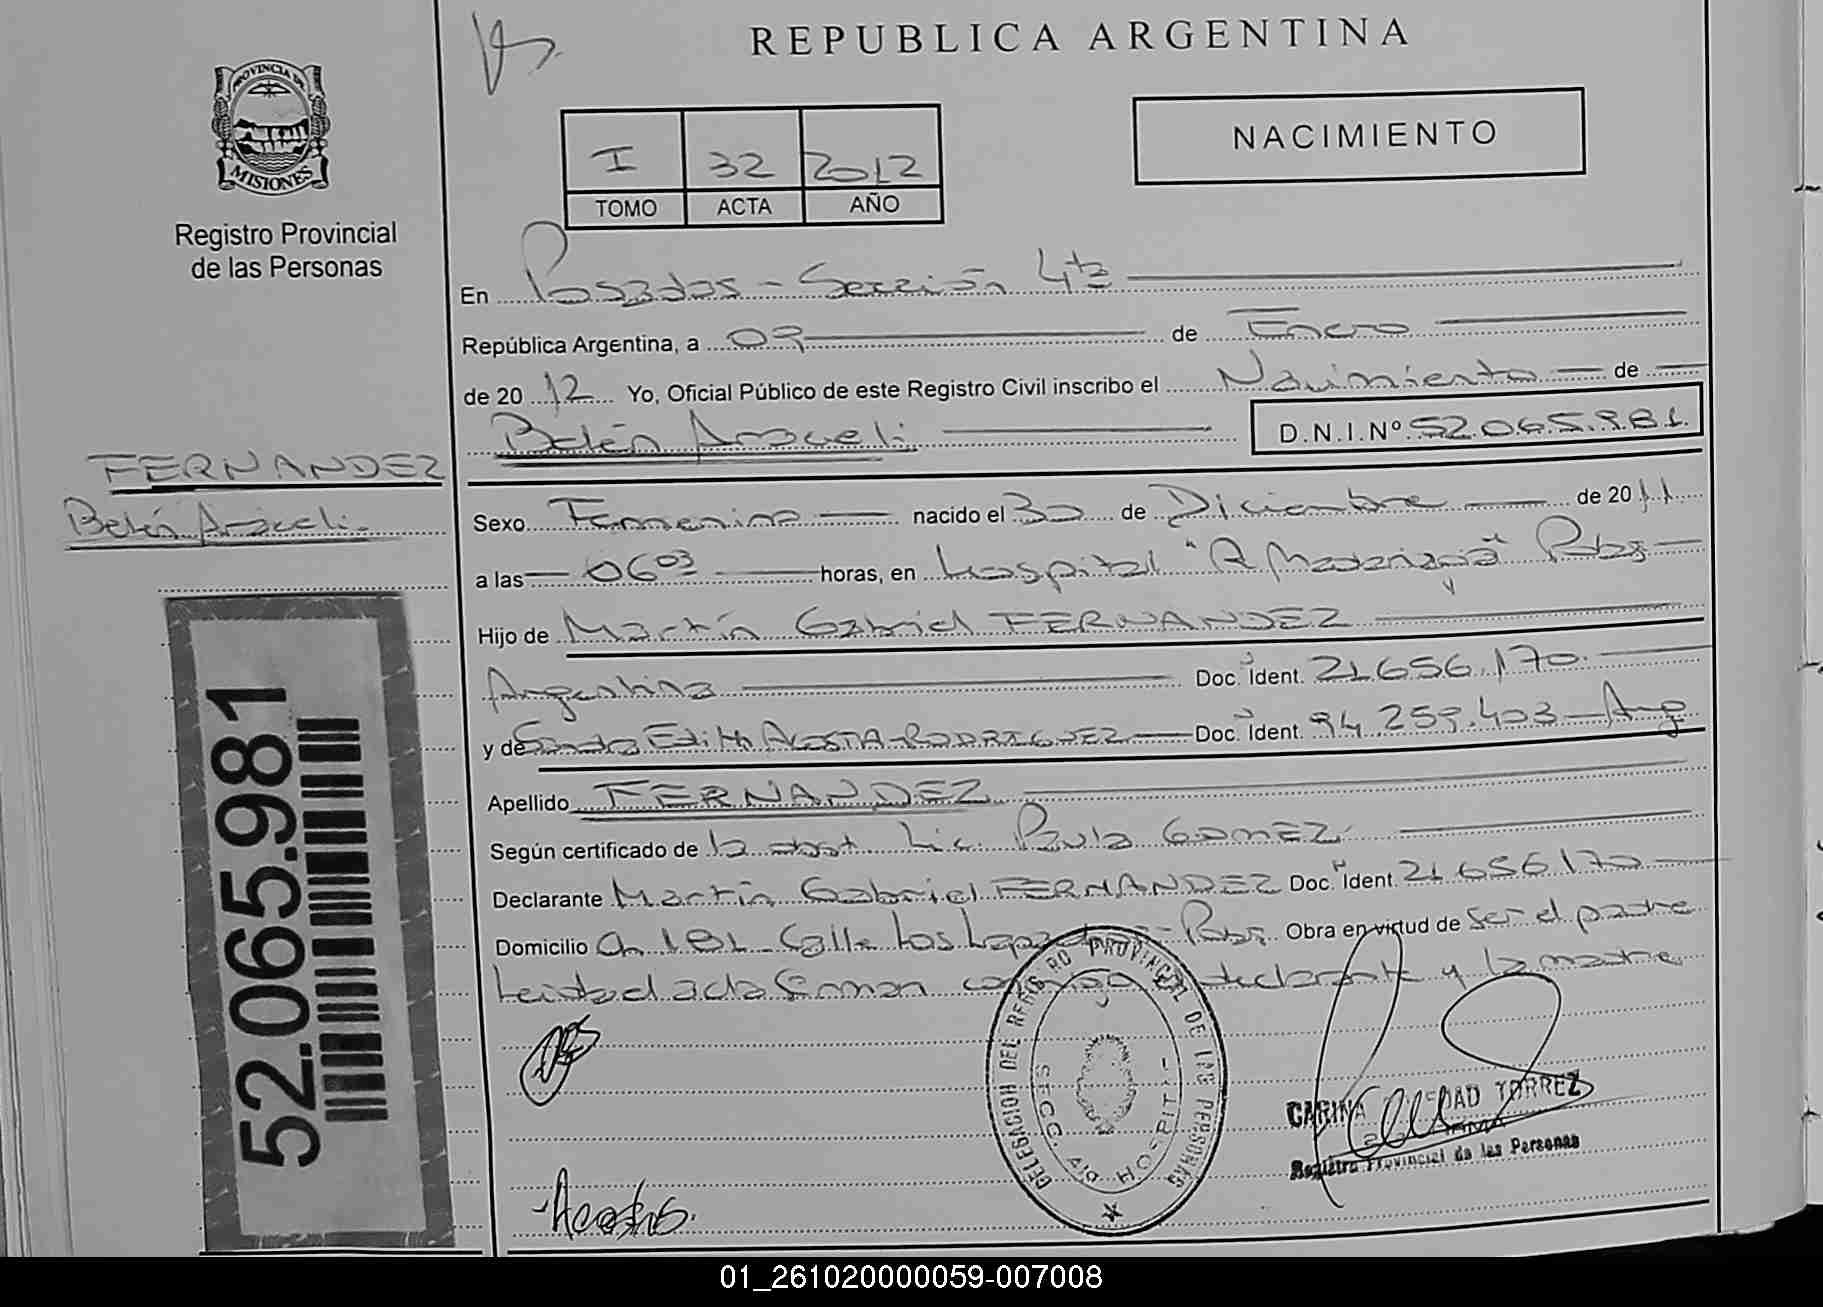 REPUBLICA ARGENTINA
PROVINCIA DE
MISIONES
Registro Provincial
de las Personas
I 32 2012
TOMO ACTA AÑO
NACIMIENTO
En Posadas - Sección 4ta
República Argentina, a 09 de Enero
de 2012 Yo, Oficial Público de este Registro Civil inscribo el Nacimiento de
Belén Araceli D.N.I.Nº 52.065.981.
FERNANDEZ
Belén Araceli
Sexo Femenino nacido el 30 de Diciembre de 2011
a las 06 03 horas, en Hospital "R Madariaga" Pdas
Hijo de Martín Gabriel FERNANDEZ
Argentina Doc. Ident. 21.656.170.
y de Sandra Edith ACOSTA RODRIGUEZ Doc. Ident. 94.259.403 - Arg
Apellido FERNANDEZ
Según certificado de la obst. Lic. Paula GOMEZ.
Declarante Martín Gabriel FERNANDEZ Doc. Ident. 21.656.170
Domicilio Ch 181 Calle Los - Pdas. Obra en virtud de ser el padre
Leída el acta firman conmigo declarante y la madre
52.065.981
DELEGACION DEL REGISTRO PROVINCIAL DE LAS PERSONAS
SECC. 4ta HOSPITAL
CARINA TORREZ
Registro Provincial de las Personas
01_261020000059-007008